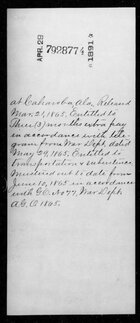 APR 29
7928774
1891
at Cahawba, Ala. Released
Mar. 27, 1865. Entitled to
three (3) months extra pay
in accordance with tele-
gram from War Dept. dated
May 29, 1865. Entitled to
transportation & subsistence.
Mustered out to date from
June 10, 1865 in accordance
with G.O. No 77, War Dept.
A.G.O. 1865.